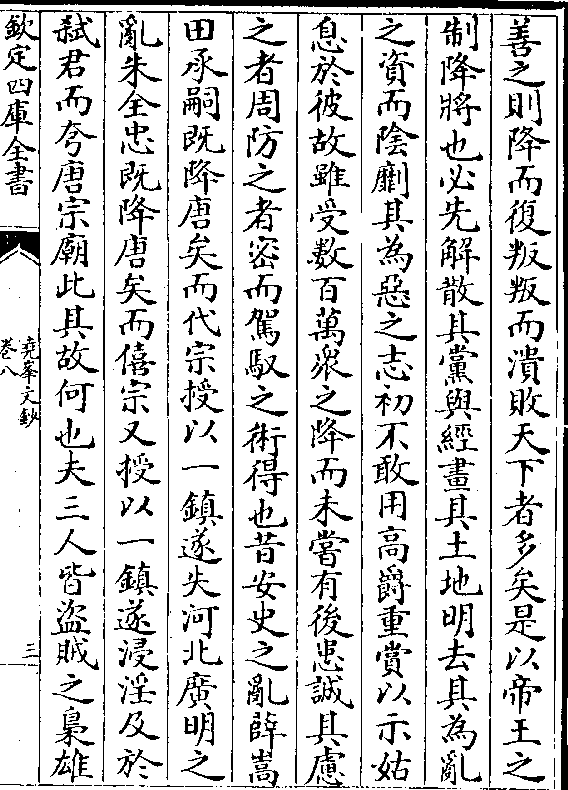 善之則降而復叛叛而潰敗天下者多矣是以帝王之
制降將也必先解散其黨與經畫其土地明去其為亂
之資而陰劘其為惡之志初不敢用高爵重賞以示姑
息於彼故雖受數百萬衆之降而未嘗有後患誠其慮
之者周防之者密而駕馭之術得也昔安史之亂薛嵩
田承嗣既降唐矣而代宗授以一鎮遂失河北廣明之
亂朱全忠既降唐矣而僖宗又授以一鎮遂浸淫及於
弑君而夸唐宗廟此其故何也夫三人皆盜賊之梟雄
欽定四庫全書
堯峯文鈔
卷八
三